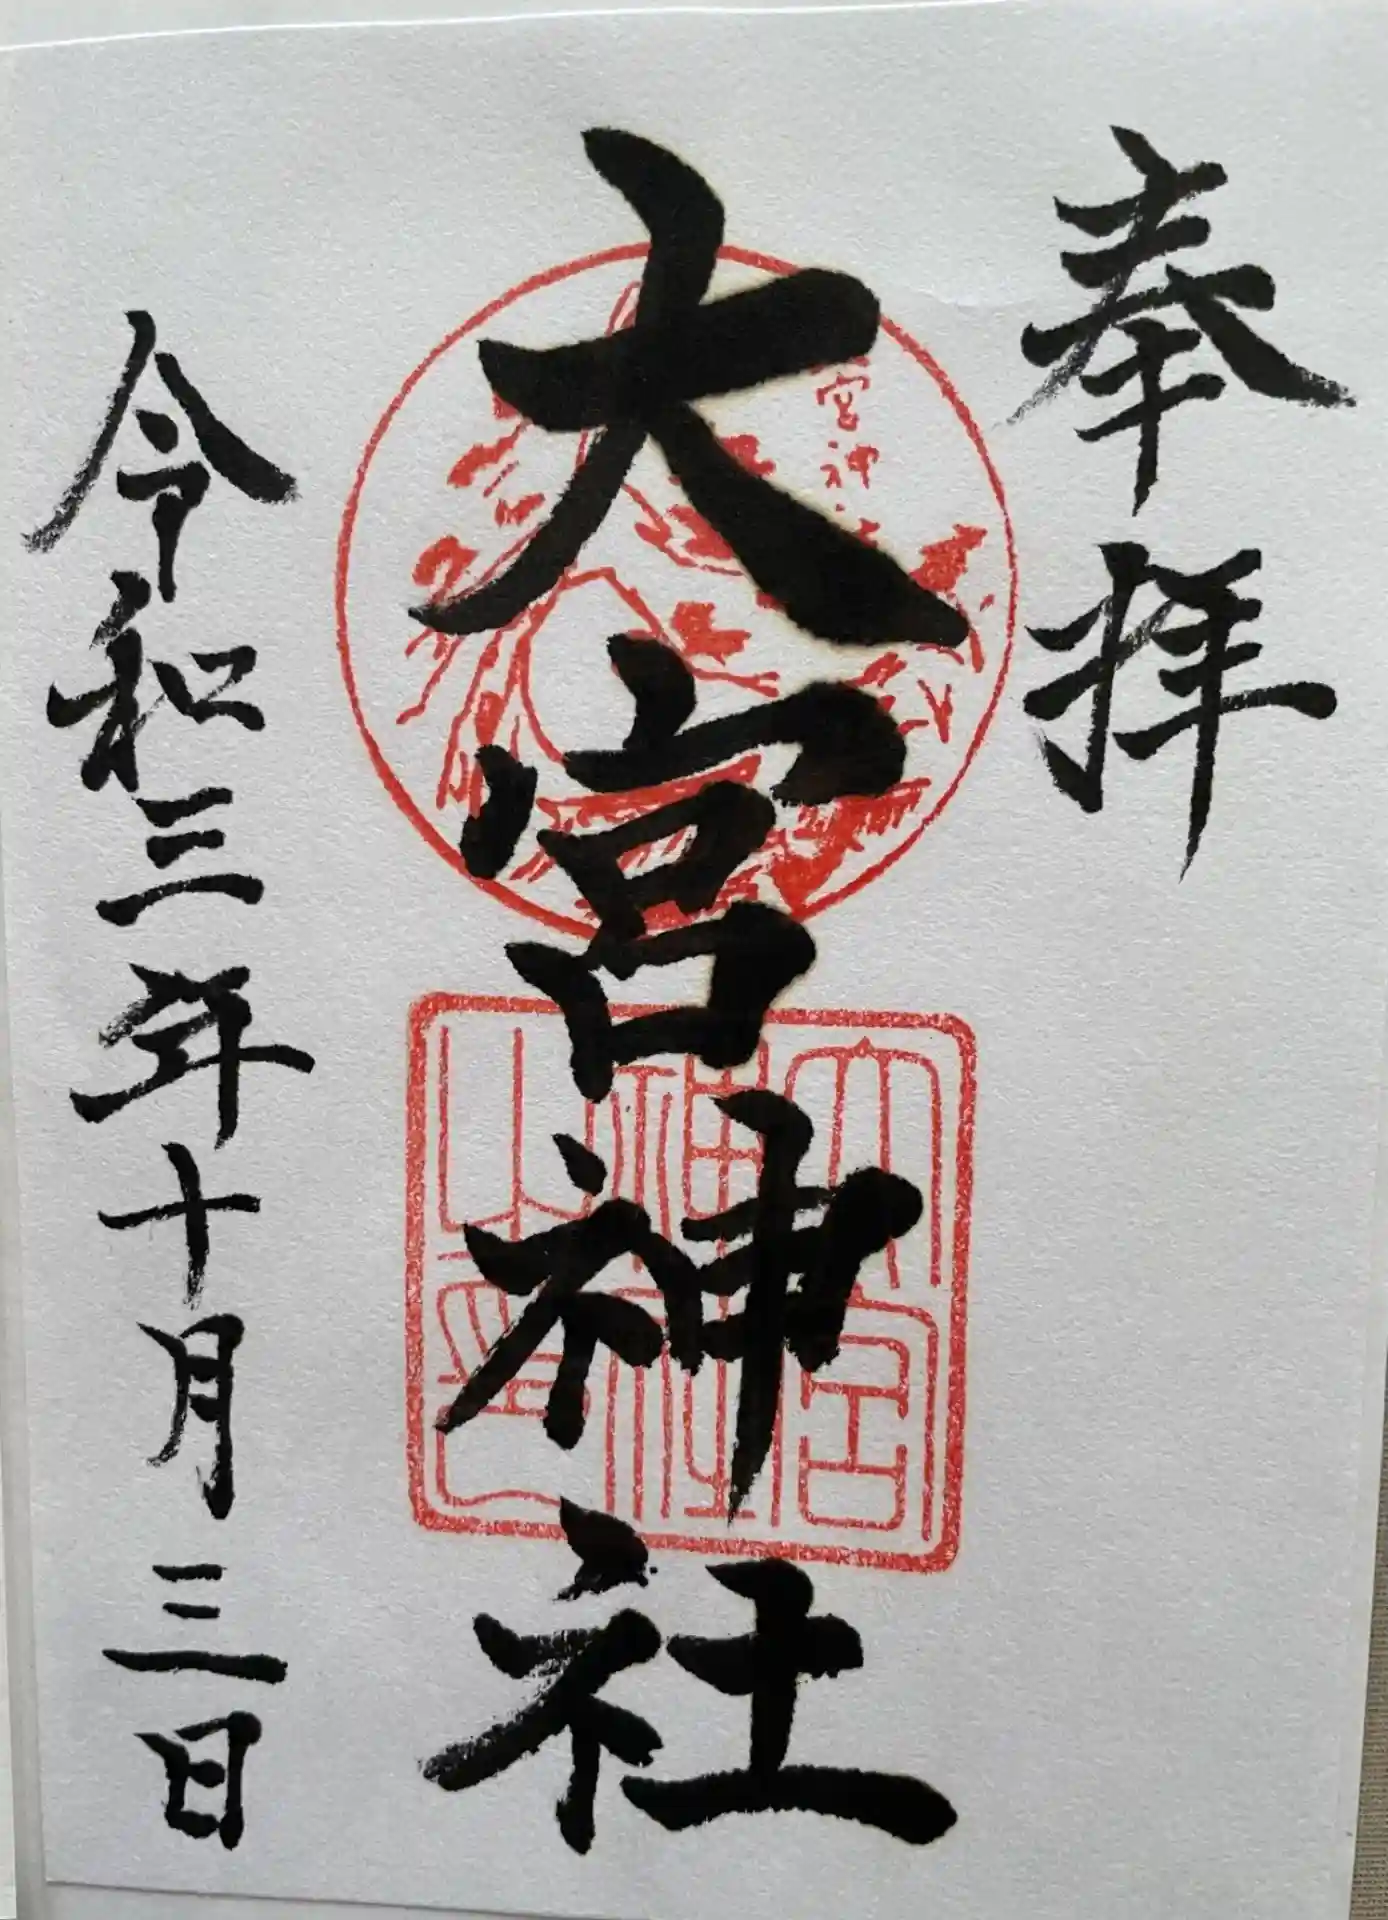 奉拝
大宮神社
宮神社
大宮
神社
之印
令和三年十月三日